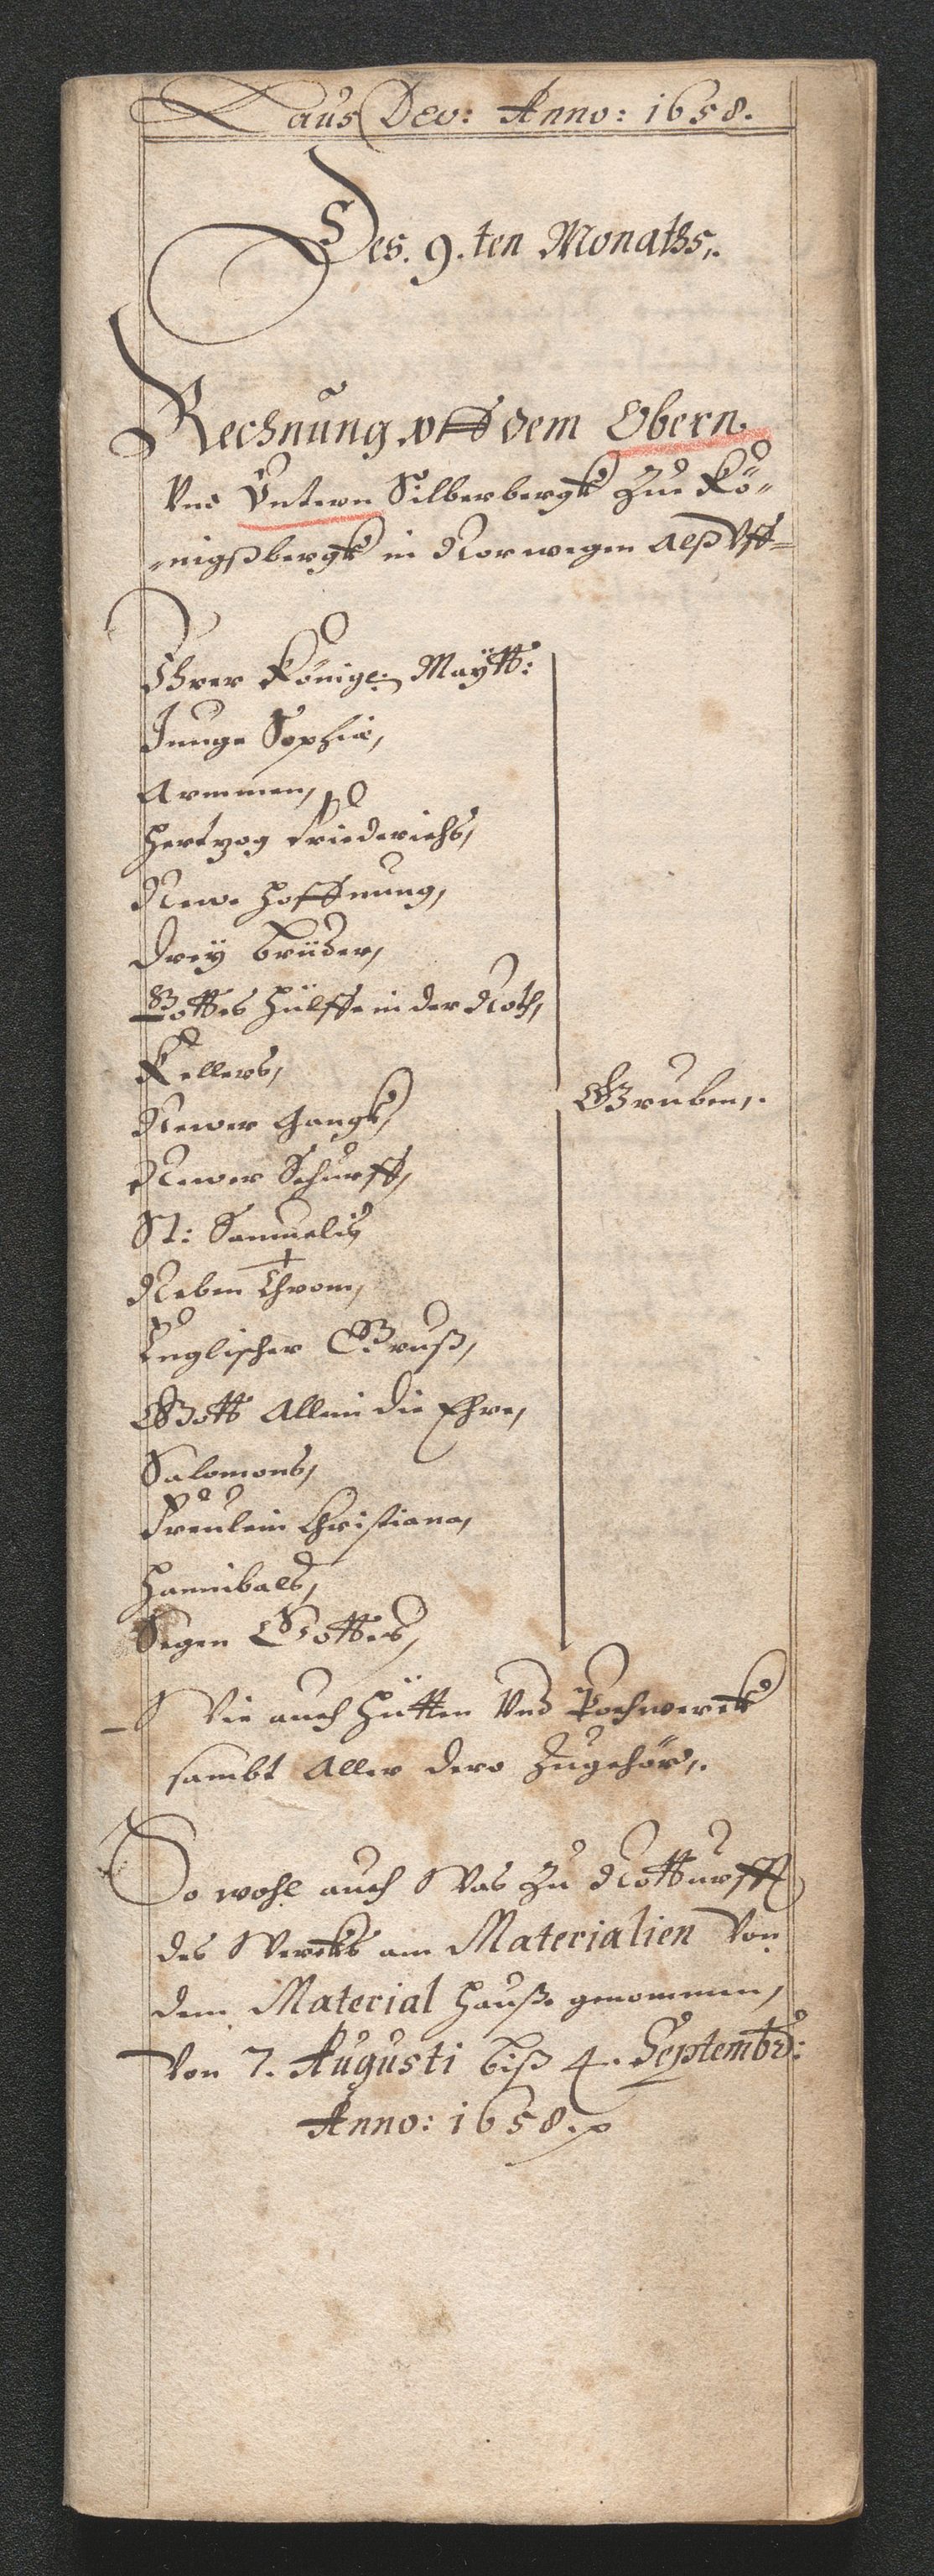 Laus Deo: Anno: 1658.
Des. 9.ten Monaths,.
Rechnung vff dem Obern.
Vnd Vntern Silberbergk Zue Kö„
„nigßbergk in Norwegen alß Vff=
Ihrer Königl: Maÿtt:
Junge Sophia,
Armmen,
Hertzog Friederichs,
Newe Hoffnung,
Dreÿ Brüder,
Gottes Hülffe in der Noth,
Kellers,
Newer Gangk,
Gruben,.
Newer Schurff,
St: Samuelis
Neben Throm,
Englischer Gruß,
Gott Allein die Ehre,
Salomons,
Freulein Christiana,
Hannibals,
Segen Gottes,
Wie auch Hütten Vnd Pochwerck
sambt Aller dero Zugehör,.
So wohl auch Was Zu Notturfft
des Wercks am Materialien Von
dem Material Hauße genommen,
Von 7. Augusti biß 4. Septembr:
Anno: 1658.